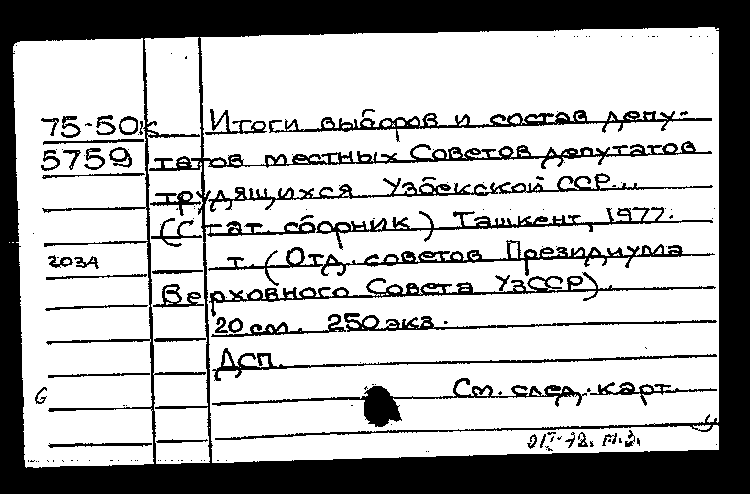 75-50к Итоги выборов и состав депу-
5759 татов местных Советов депутатов
трудящихся Узбекской ССР...
(Стат. сборник) Ташкент, 1977.
2034 т. (Отд. советов Президиума
Верховного Совета УзССР).
20 см. 250 экз.
ДСП.
См. след. карт.